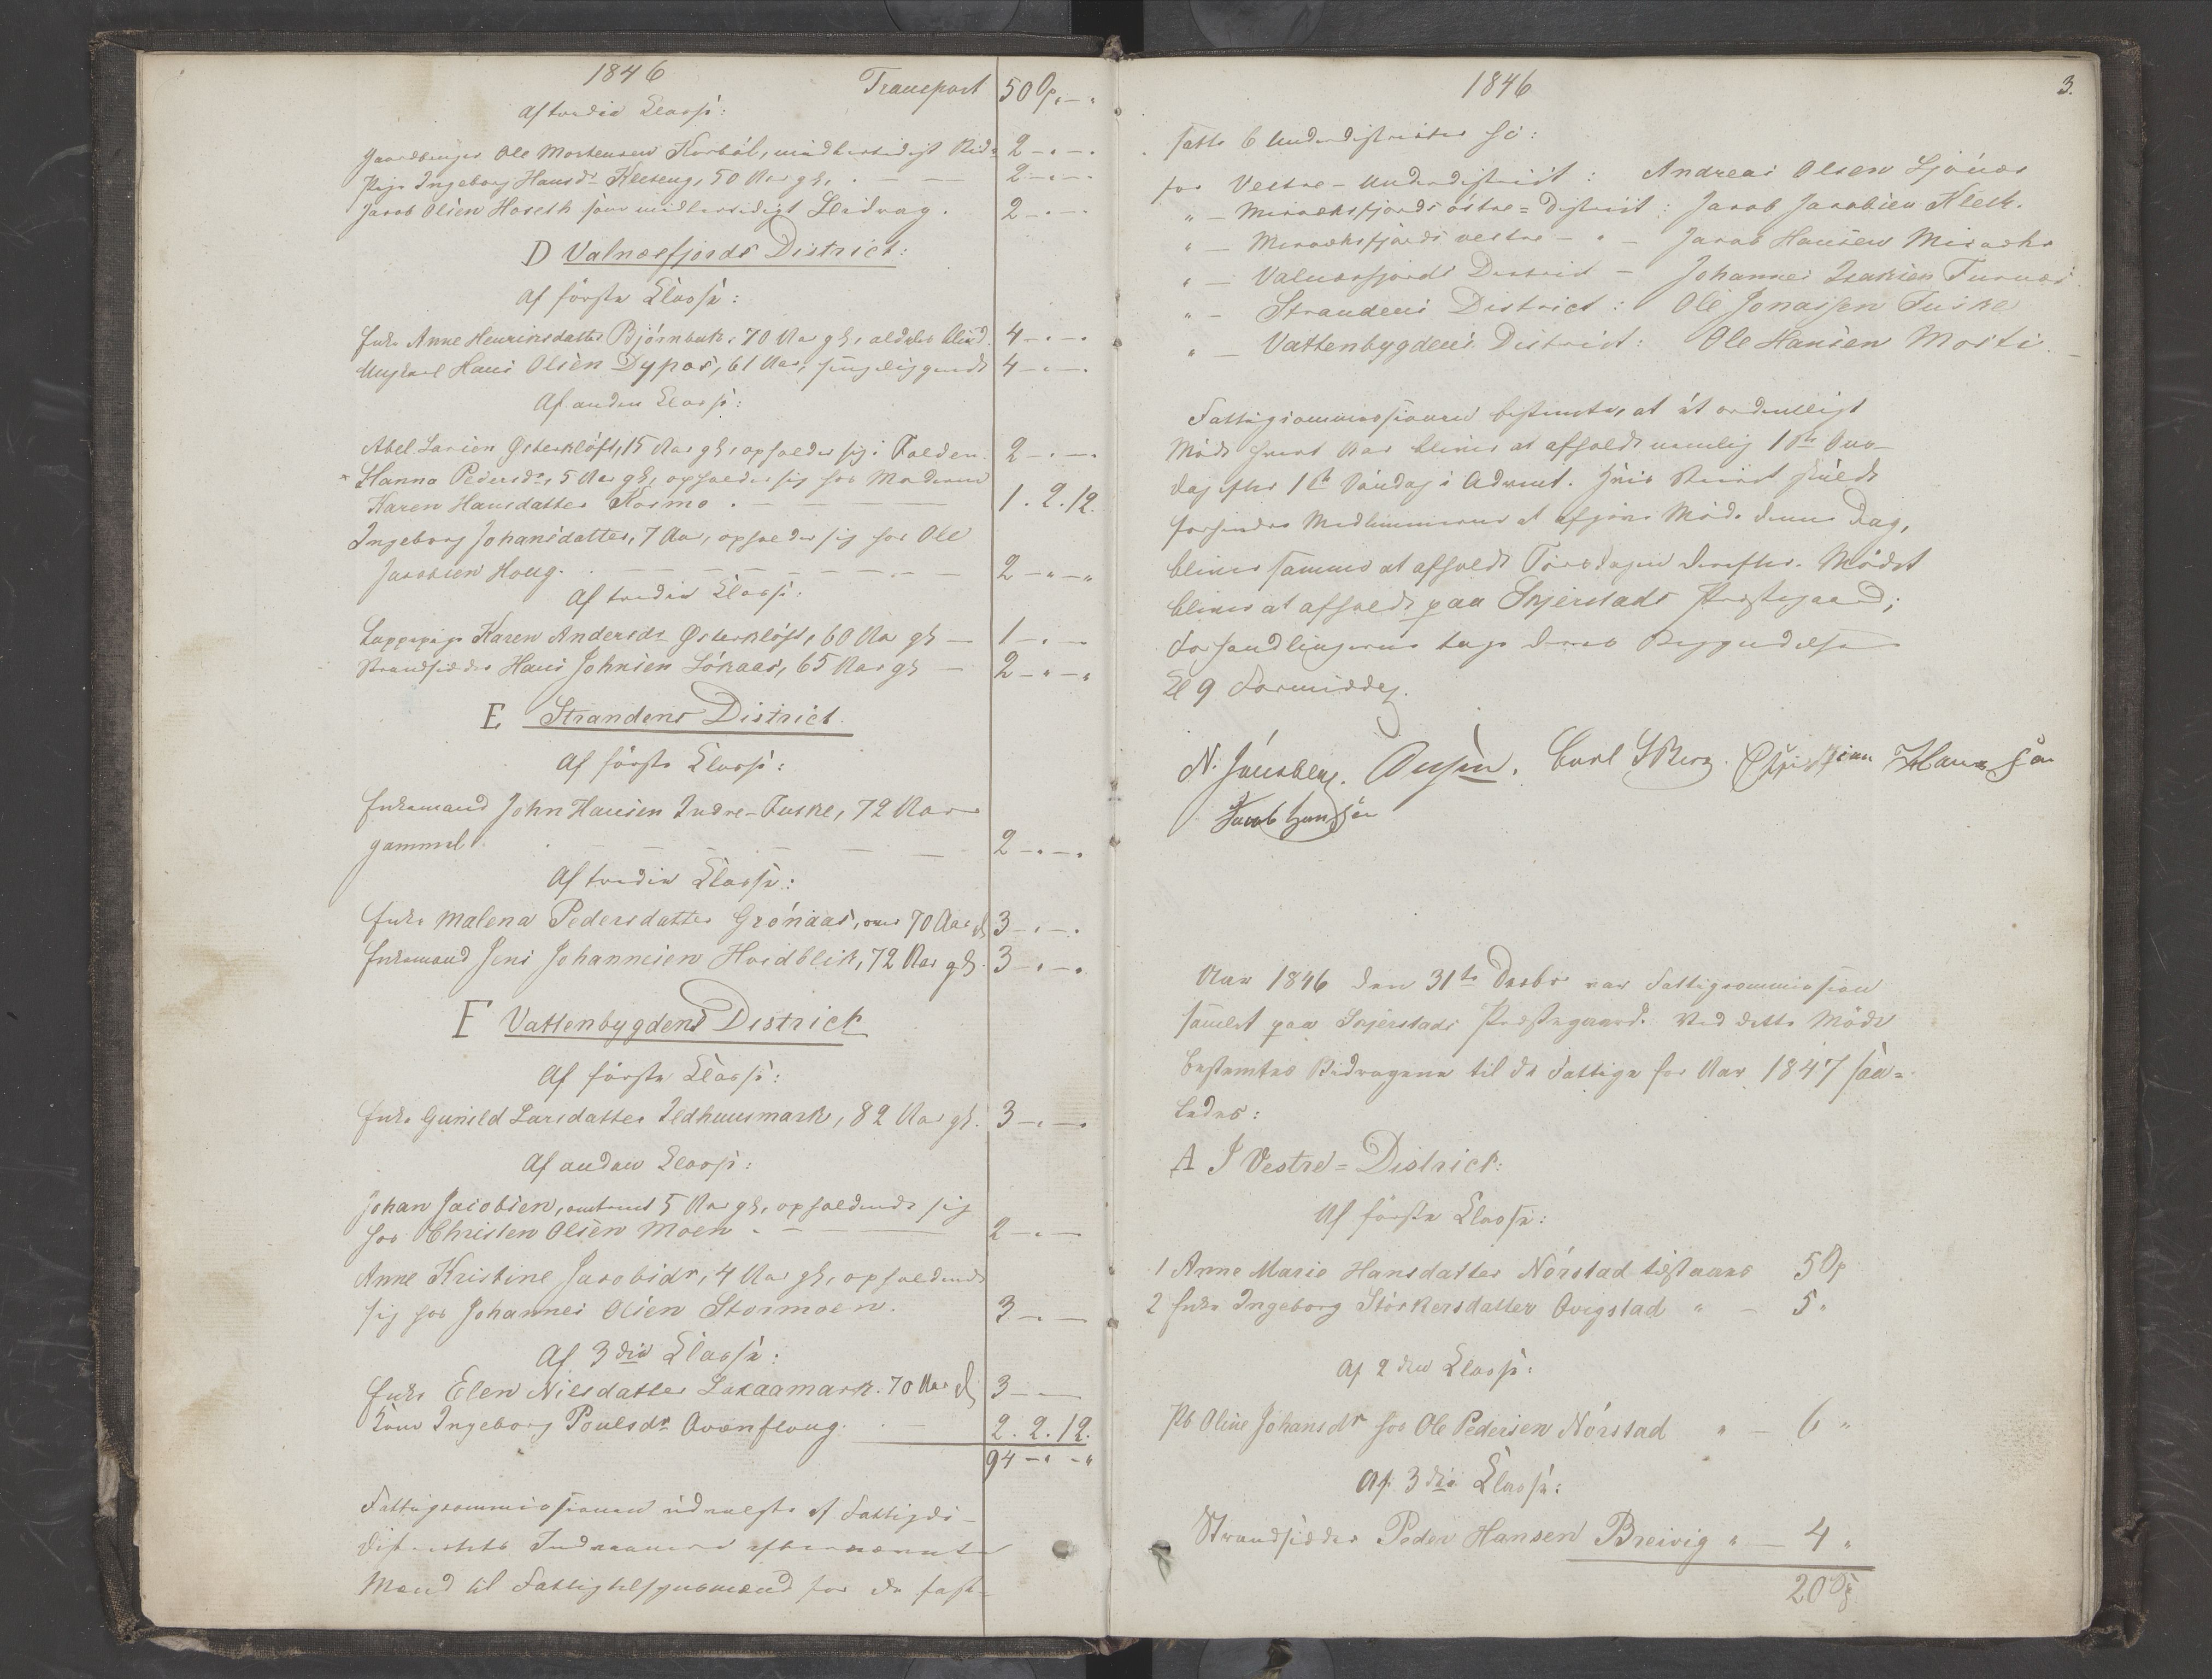 1846
Transport 50 Sp. - "
Af tredie Classe:
Gaardbruger Ole Mortensen Korbøl, midlertidigt Bidr. 2 - " - "
Pige Ingeborg Hansdr Kleteng, 50 Aar gl, 2 - " - "
Jacob Olsen Hoseth som midlertidigt Bidrag. 2 - " - "
D Valnæsfjords District:
Af første Classe:
Enke Anne Henriksdatter Bjørnbak, 70 Aar gl, aldeles blind. 4 - " - "
Ungkarl Hans Olsen Dypos, 61 Aar, sengeliggende 4 - " - "
Af anden Classe:
Abel Larsen Østerkløft, 15 Aar gl, opholder sig i Folden. 2 - " - "
Hanna Pedersdr, 5 Aar gl, opholder sig hos Moderen
Karen Hansdatter Kosmo. 1. 2. 12.
Ingeborg Johansdatter, 7 Aar, opholder sig hos Ole
Jacobsen Houg. 2 - " - "
Af tredie Classe:
Lappepige Karen Andersdr Østerkløft, 60 Aar gl - 1 - " -
Strandsidder Hans Johnsen Løkaas, 65 Aar gl - 2 - " - "
E Strandens District.
Af første Classe:
Enkemand John Hansen Indre-Fuske, 72 Aar
gammel. 2 - " - "
Af tredie Classe:
Enke Malena Pedersdatter Grønaas, over 70 Aar gl 3 - " - "
Enkemand Jens Johannesen Hvidblik, 72 Aar gl. 3 - " - "
F Vattenbygdens District
Af første Classe:
Enke Gunild Larsdatter Ildhuusmark, 82 Aar gl. 3 - " -
Af anden Classe:
Johan Jacobsen, omtrent 5 Aar gl, opholdende sig
hos Christen Olsen Moen. 2 - " -
Anne Kristine Jacobsdr, 4 Aar gl, opholdende
sig hos Johannes Olsen Stormoen. 3 - " -
Af 3die Classe:
Enke Elen Nilsdatter Lakaamark. 70 Aar gl 3 - -
Kone Ingeborg Poulsdr Ovenfloug. 2. 2. 12.
94 - " - "
Fattigcommissionen udvalgte af Fattigdi-
districtets Indvaanere efternævnte
Mænd til Fattigtilsynsmænd for de fast-
1846
3.
satte 6 Underdistricter so:
for Vestre-Underdistrict: Andreas Olsen Ljønæs
" - Misværfjords østre=District: Jacob Jacobsen Kleth.
" - Misværfjords vestre - " - Jacob Hansen Misvær
" - Valnæsfjords District - Johannes Isaksen Furnæs
" - Strandens District: Ole Jonassen Fuske
" - Vattenbygdens District: Ole Hansen Mosti.
Fattigcommissionen bestemte, at et ordentligt
Møde hvert Aar bliver at afholde nemlig 1ste Ons-
dag efter 1ste Søndag i Advent. Hvis Veiret skulde
forhindre Medlemmerne at afgive Møde denne Dag,
bliver samme at afholde Torsdagen derefter. Mødet
bliver at afholde paa Skjerstads Præstegaard;
Forhandlingerne tage deres Begyndelse
Kl 9 Formiddag.
N. Jønsberg. Carl S Berg. Christian Hanssøn
Jacob Hanssøn
Aar 1846 den 31te Decbr var Fattigcommission
samlet paa Skjerstads Præstegaard. Ved dette Møde
bestemtes Bidragene til de Fattige for Aar 1847 saa=
ledes:
A I Vestre=District:
Af første Classe:
1 Anne Marie Hansdatter Nórstad tilstaaes 5 Sp
2 Enke Ingeborg Størkersdatter Qvigstad " - 5 "
Af 2den Classe:
Pb Oline Johansdr hos Ole Pedersen Nórstad " - 6 "
Af 3die Classe:
Strandsidder Peder Hansen Breivig " - 4 "
20 Sp